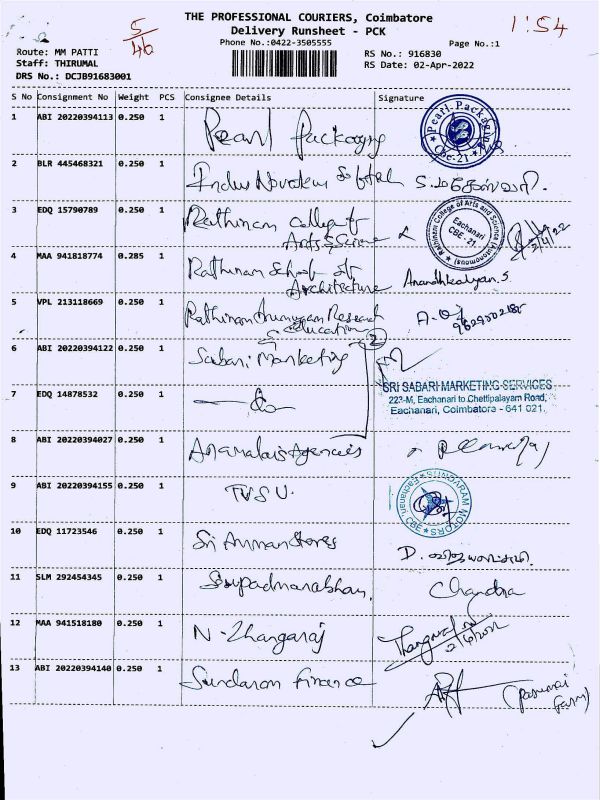 5/46
THE PROFESSIONAL COURIERS, Coimbatore
1:54
Delivery Runsheet - PCK
Phone No.:0422-3505555
Page No.:1
Route: MM PATTI
RS No.: 916830
Staff: THIRUMAL
RS Date: 02-Apr-2022
DRS No.: DCJB91683001
S No Consignment No Weight PCS Consignee Details Signature
1 ABI 20220394113 0.250 1 Pearl Packaging
Pearl Packaging Cbe-21
2 BLR 445468321 0.250 1 Indus Novateur
3 EDQ 15790789 0.250 1 Rathinam College of
Arts & Science
Rathinam College of Arts and Science (Autonomous) Eachanari CBE - 21
2/4/22
4 MAA 941818774 0.285 1 Rathinam School of
Architecture
Anandhkalyan.S
5 VPL 213118669 0.250 1 Rathinam Arumugam Research
& education
6 ABI 20220394122 0.250 1 Sabari Marketing
2
SRI SABARI MARKETING SERVICES
223-M, Eachanari to Chettipalayam Road,
Eachanari, Coimbatore - 641 021.
7 EDQ 14878532 0.250 1 do
8 ABI 20220394027 0.250 1 Anamalais Agencies
9 ABI 20220394155 0.250 1 TVSU
SUNDARAM MOTORS Eachanari CBE
10 EDQ 11723546 0.250 1 Sri Amman Stores
11 SLM 292454345 0.250 1 Chandra
12 MAA 941518180 0.250 1 N. Thangaraj
Thangaraj
2/4/2022
13 ABI 20220394140 0.250 1 Sundaram Finance